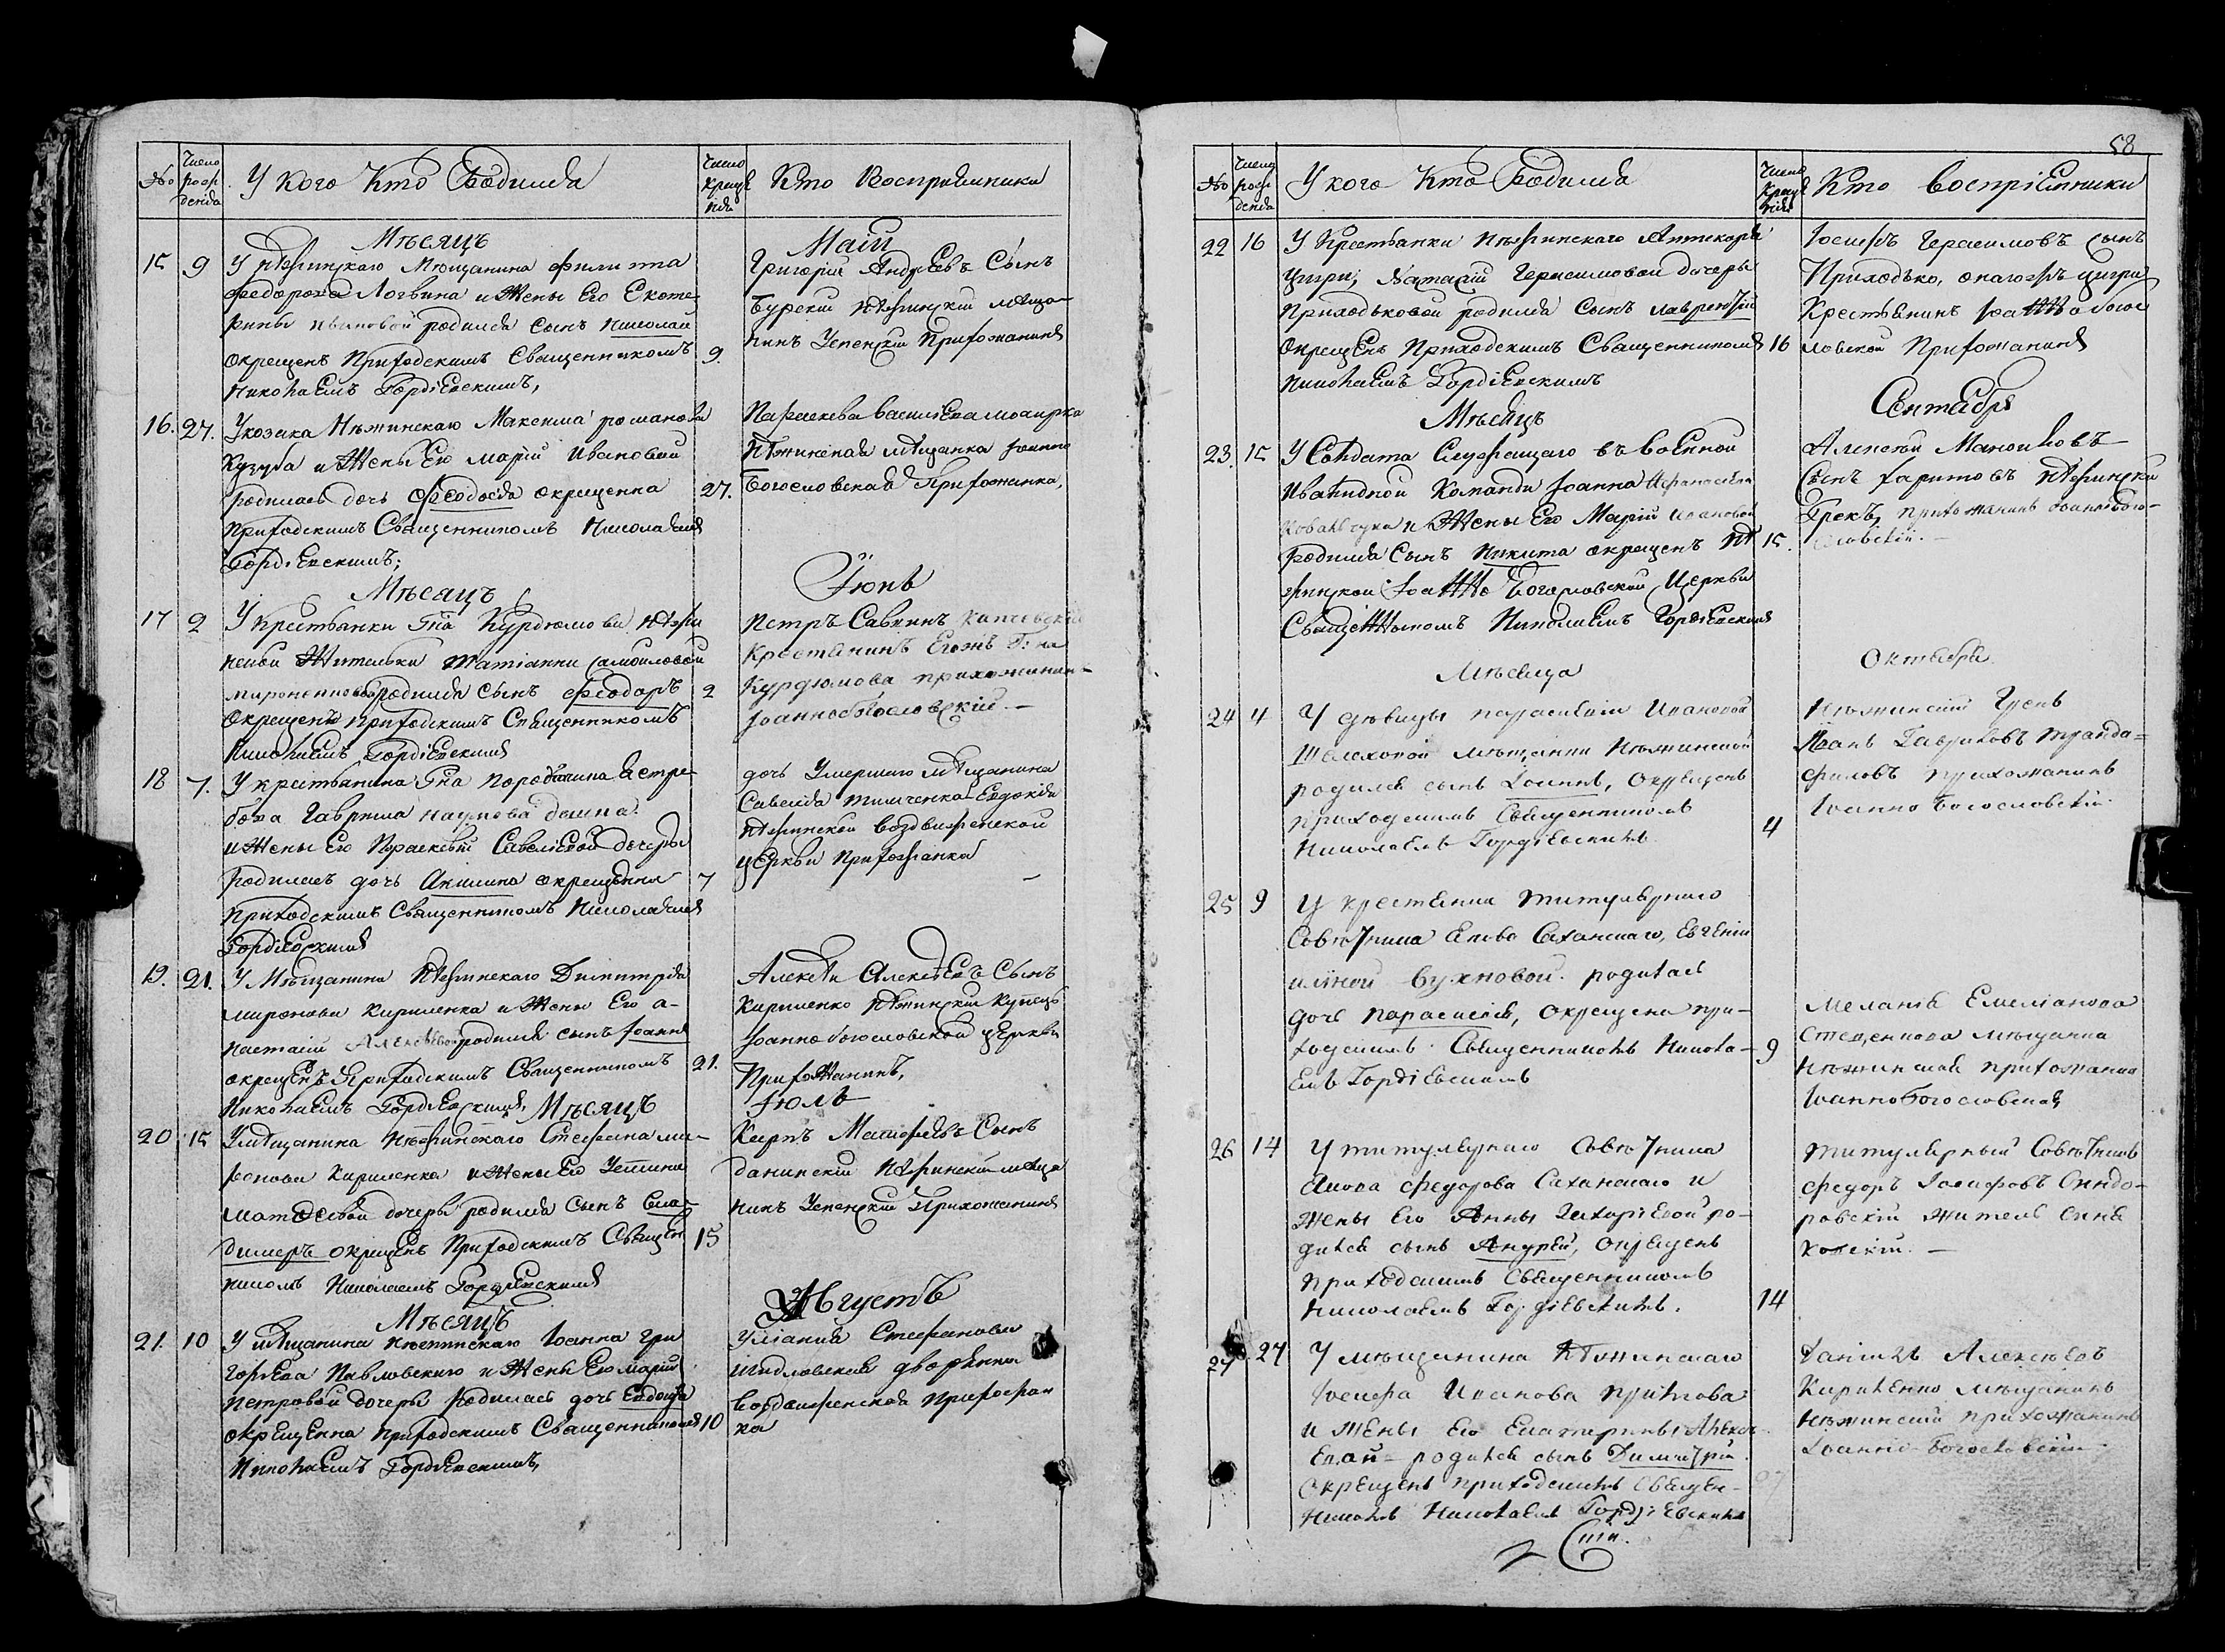 № Число рож дения У Кого Кто Родился Число крещения Кто Восприемники
Мѣсяцъ Маiи
15 9 У нѣжинскаго Мѣщанина Филипа
Федорова Логвина и Жены Его Екате-
рины Ивановой родился Сынъ Николай
Окрещенъ Приходскимъ Священникомъ 9.
Николаемъ Гордіевскимъ,
Григорій Андрѣевъ Сынъ
Бурскій нѣжинскій мѣща-
нинъ Успенскій Прихожанинъ
16. 27. У козака Нѣжинскаго Максима романова
Кузуба и Жены Его Маріи Ивановой
родилась дочь Феодосія окрещенна 27.
Приходскимъ Священникомъ Николаемъ
Гордіевскимъ;
Параскева василіева
Нѣжинская мѣщанка Іоанно
Богословская Прихожанка,
Мѣсяцъ Іюнь
17 2 У Крестьянки Гна Курдюмова нѣжи
нской Жительки Татіанны Самойловой
мироненковой родился сынъ Феодоръ 2
Окрещенъ Приходскимъ Священникомъ
Николаемъ Гордіевскимъ
Петръ Савинъ
Крестьянинъ Егожъ Г:на
Курдюмова прихожанин-
Іоаннобогословскій. —
18 7. У крестьянина Гна
Гавриила Наумова
и Жены Его Параскевіи Савеліевой дочери
родилась дочь Акилина окрещенна 7
Приходскимъ Священникомъ Николаемъ
Гордіевскимъ
дочь Умершаго мѣщанина
Савелія тимченка Евдокія
нѣжинской воздвиженской
церкви Прихожанка —
19. 21. У Мѣщанина Нѣжинскаго Димитрія
миронова Кириленка и Жены Его А-
настасіи Алексѣевой родился сынъ Іоаннъ
окрещенъ Приходскимъ Священникомъ 21.
Николаемъ Гордіевскимъ, Мѣсяцъ
Алексѣй Алексѣевъ Сынъ
Кириленко Нѣжинскій Купецъ
Іоаннобогословской церкви
Прихожанинъ,
Іюль
20 15 У мѣщанина Нѣжинскаго Стефана ми-
ронова Кириленка и Жены Его Устини
матѳеевой дочери родился Сынъ Вла-
димиръ окрещенъ Приходскимъ Священ 15
никомъ Николаемъ Гордіевскимъ
Карпъ Матѳеевъ Сынъ
данинскій Нѣжинскій мѣща
нинъ Успенскій Прихожанинъ
Мѣсяцъ Августъ
21. 10 У мѣщанина Нѣжинскаго Іоанна Гри
горіева Павловскаго и Жены Его Маріи
Петровой дочери родилась дочь Евдокія
окрещенна Приходскимъ Священникомъ 10
Николаемъ Гордіевскимъ,
Уліанія Стефанова
Шидловская дворянка
воздвиженская Прихожан
ка
58
№ Число рож дения У кого Кто Родился Число Крещ ния Кто воспріемники
22 16 У Крестьянки Нѣжинскаго Аптекаря
Цигри, Наталіи Герасимовой дочери
Приходьковой родился Сынъ Лаврентій
Окрещенъ Приходскимъ Священникомъ 16
Николаемъ Гордіевскимъ
Іосифъ Герасимовъ сынъ
Приходько, онагожъ цигри
Крестьянинъ Іоаннобогос
ловской Прихожанинъ
Мѣсяцъ Сентября
23. 15 У Солдата Служащаго въ военной
Инвалидной Команди Іоанна
Ковальчука и Жены Его Маріи Ивановой
родился Сынъ Никита окрещенъ Нѣ 15.
жинской Іоанно Богословской Церкви
Священникомъ Николаемъ Гордіевскимъ
Алексѣй Манойловъ
Сынъ Харитовъ Нѣжинскій
Грекъ, прихожанинъ Іоаннобого-
словскій. —
Мѣсяца Октября
24 4 У дѣвицы Параскевіи Ивановой
Шелеховой мѣщанки Нѣжинской
родился сынъ Іоаннъ, Окрещенъ
приходскимъ Священникомъ 4
Николаемъ Гордіевскимъ
Нѣжинскій Грекъ
Иванъ Гавриловъ Трианда-
филовъ прихожанинъ
Іоанно Богословскій.
25 9 У крестьянки титулярнаго
Совѣтника Якова Саханскаго, Евгеніи
Буяновой. родилась
дочь Параскевія, Окрещена при-
ходскимъ Священникомъ Никола- 9
емъ Гордіевскимъ
Меланія Емеліанова
Стеценкова мѣщанка
Нѣжинская прихожанка
Іоанно Богословская
26 14 У титулярнаго Совѣтника
Якова Федорова Саханскаго и
Жены Его Анны Григоріевой ро-
дился сынъ Андрей, Окрещенъ
приходскимъ Священникомъ
Николаемъ Гордіевскимъ. 14
Титулярный Совѣтникъ
Федоръ Іосифовъ
ровскій житель
27 27 У мѣщанина Нѣжинскаго
Іосифа Иванова
и Жены Его Екатерины Алексѣ-
евой родился сынъ Димитрій.
Окрещенъ приходскимъ Священ- 27
никомъ Николаемъ Гордіевскимъ
Даніилъ Алексѣевъ
Кириленко мѣщанинъ
Нѣжинскій прихожанинъ
Іоанно-Богословскій.